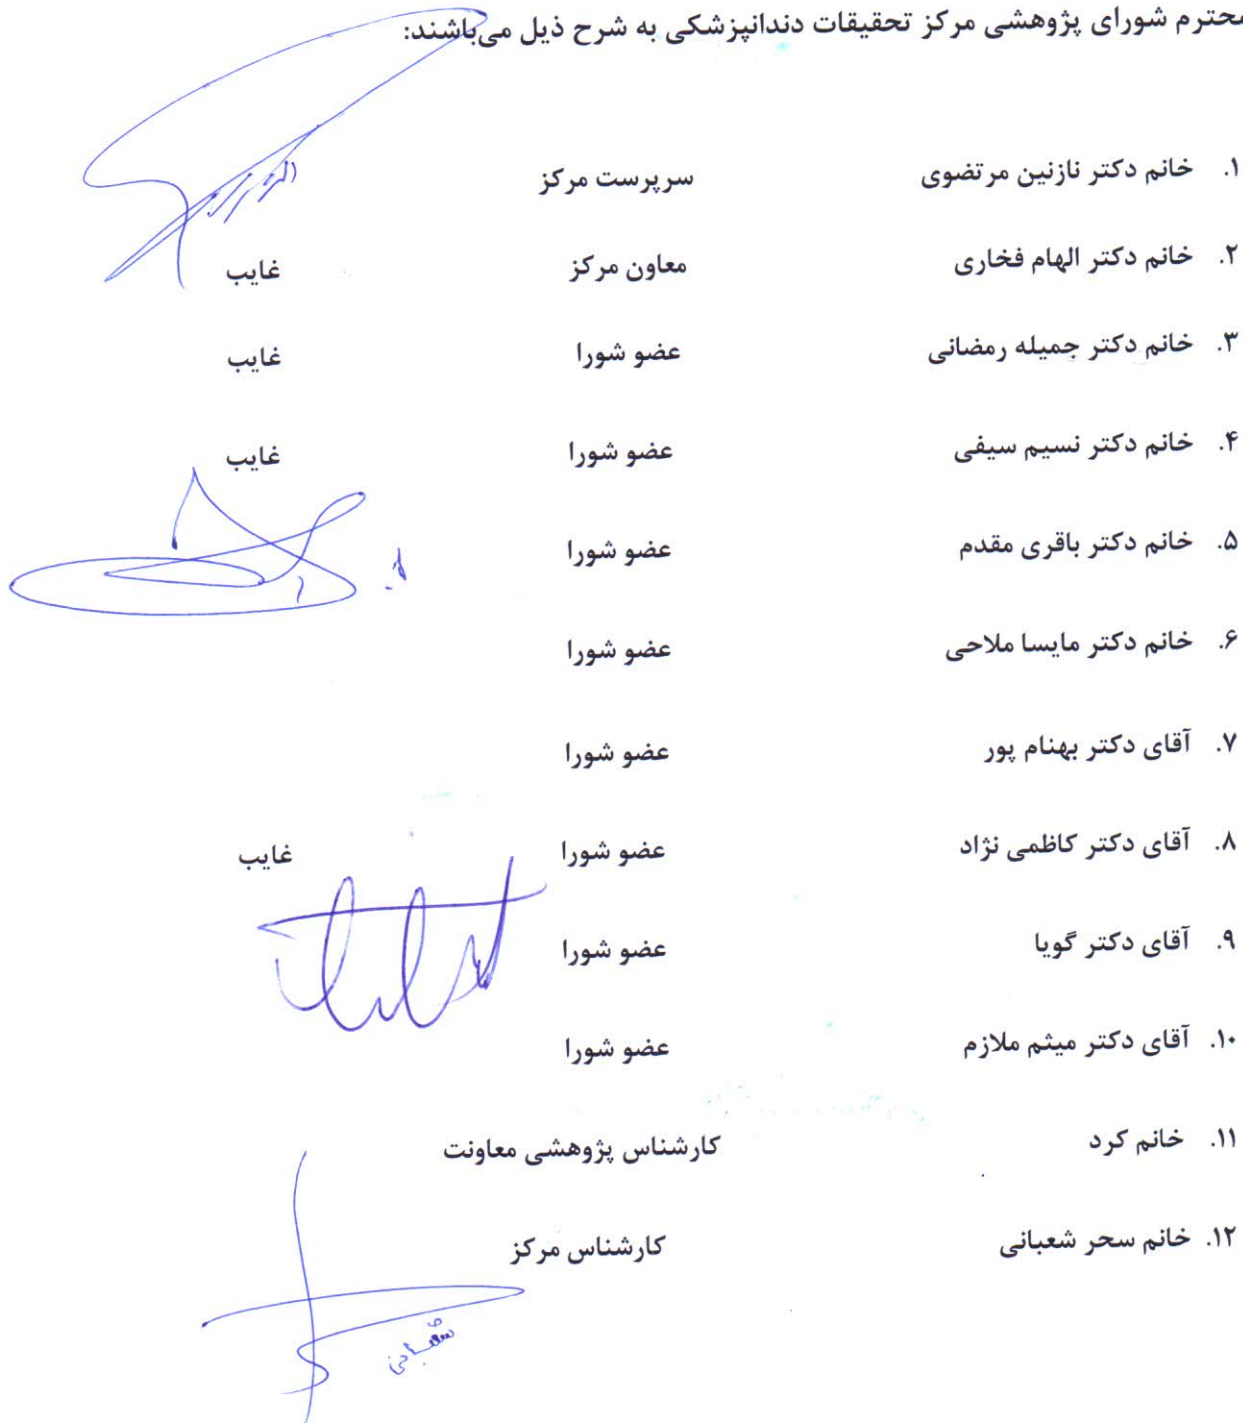 محترم شورای پژوهشی مرکز تحقیقات دندانپزشکی به شرح ذیل می‌باشند:
۱. خانم دکتر نازنین مرتضوی سرپرست مرکز
۲. خانم دکتر الهام فخاری معاون مرکز غایب
۳. خانم دکتر جمیله رمضانی عضو شورا غایب
۴. خانم دکتر نسیم سیفی عضو شورا غایب
۵. خانم دکتر باقری مقدم عضو شورا
۶. خانم دکتر مایسا ملاحی عضو شورا
۷. آقای دکتر بهنام پور عضو شورا
۸. آقای دکتر کاظمی نژاد عضو شورا غایب
۹. آقای دکتر گویا عضو شورا
۱۰. آقای دکتر میثم ملازم عضو شورا
۱۱. خانم کرد کارشناس پژوهشی معاونت
۱۲. خانم سحر شعبانی کارشناس مرکز
شعبانی